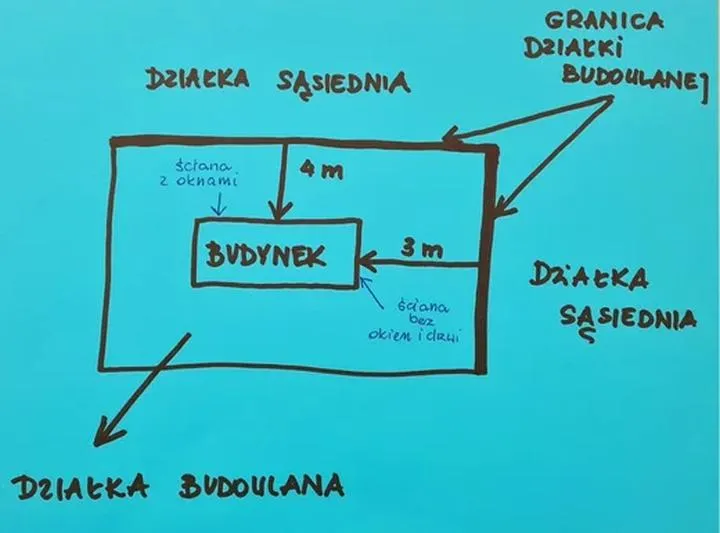 GRANICA
DZIAŁKI
BUDOULANEJ
DZIAŁKA SĄSIEDNIA
ściana
z oknami
4 m
BUDYNEK
3 m
DZIAŁKA
SĄSIEDNIA
ściana
bez
okien i drzwi
DZIAŁKA BUDOULANA